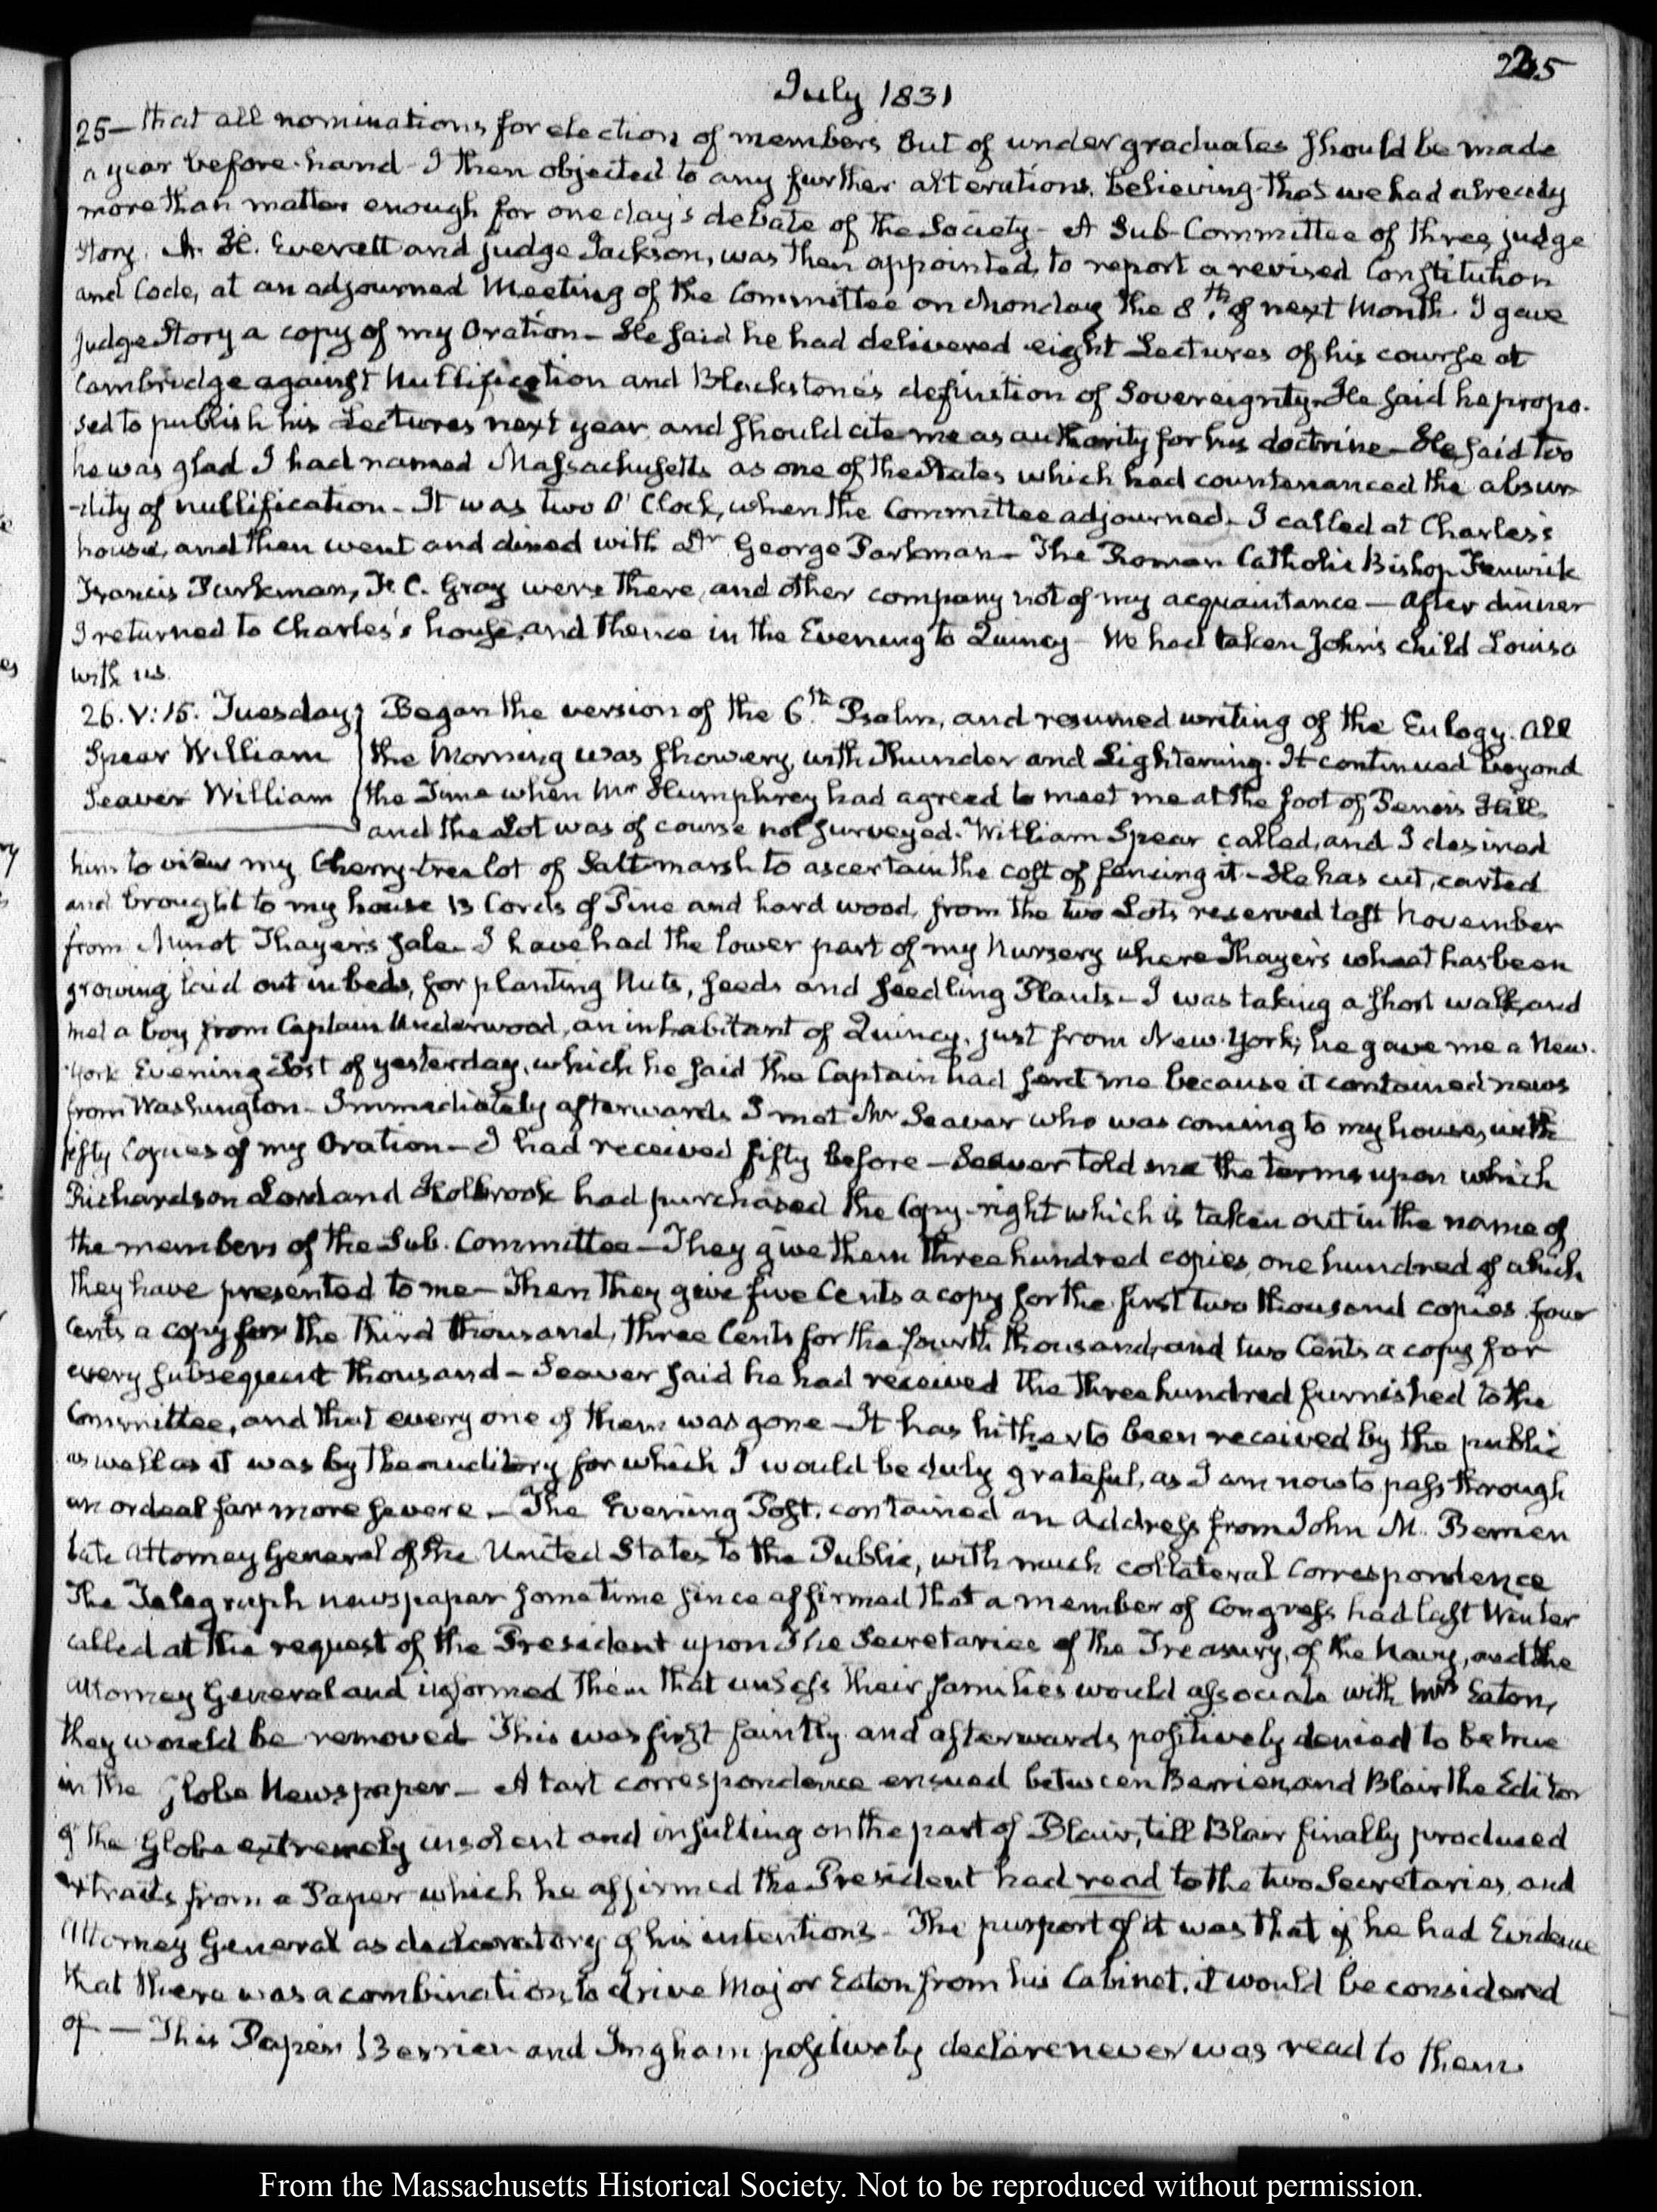 225
July 1831
25— that all nominations for election of members out of undergraduates should be made
a year before-hand - I then objected to any further alterations, believing that we had already
more than matter enough for one day's debate of the Society - A Sub-Committee of three, judge
Story, A. H. Everett and judge Jackson, was then appointed, to report a revised Constitution
and Code, at an adjourned Meeting of the Committee on Monday the 8th. of next Month. I gave
judge Story a copy of my Oration - He said he had delivered eight Lectures of his course at
Cambridge against Nullification and Blackstone's definition of Sovereignty - He said he propo-
sed to publish his Lectures next year, and should cite me as authority for his doctrine - He said too
he was glad I had named Massachusetts as one of the States which had countenanced the absur-
-dity of nullification - It was two O' Clock, when the Committee adjourned - I called at Charles's
house, and then went and dined with Dr George Parkman - The Roman Catholic Bishop Fenwick
Francis Parkman, F. C. Gray were there, and other company not of my acquaintance — After dinner
I returned to Charles's house, and thence in the Evening to Quincy - We had taken John's child Louisa
with us.
26. V:15. Tuesday } Began the version of the 6th. Psalm, and resumed writing of the Eulogy. All
Spear William the Morning was showery, with Thunder and Lightening. It continued beyond
Seaver William the Time when Mr Humphrey had agreed to meet me at the foot of Penn's Hill
and the Lot was of course not surveyed. William Spear called, and I desired
him to view my Cherry-tree lot of Salt-marsh to ascertain the cost of fencing it - He has cut, carted
and brought to my house 13 Cords of Pine and hard wood, from the two Lots reserved last November
from Minot Thayer's sale - I have had the lower part of my Nursery where Thayer's wheat has been
growing, laid out in beds, for planting Nuts, seeds and seedling Plants - I was taking a short walk, and
met a boy from Captain Underwood, an inhabitant of Quincy, just from New-York; he gave me a New-
York Evening Post of yesterday, which he said the Captain had sent me because it contained news
from Washington - Immediately afterwards I met Mr Seaver who was coming to my house, with
fifty Copies of my Oration - I had received fifty before - Seaver told me the terms upon which
Richardson Lord and Holbrook had purchased the Copy-right which is taken out in the name of
the members of the Sub-Committee - They give them three hundred copies, one hundred of which
they have presented to me - Then they give five Cents a copy for the first two thousand copies four
Cents a copy for the third thousand, three Cents for the fourth thousand, and two Cents a copy for
every subsequent thousand - Seaver said he had received the three hundred furnished to the
Committee, and that every one of them was gone - It has hitherto been received by the public
as well as it was by the auditory for which I would be duly grateful, as I am now to pass through
an ordeal far more severe. - The Evening Post, contained an Address from John M. Berrien
late Attorney General of the United States to the Public, with much collateral correspondence
The Telegraph newspaper some time since affirmed that a member of Congress had last Winter
called at the request of the President upon the Secretaries of the Treasury, of the Navy, and the
Attorney General and informed them that unless their families would associate with Mrs Eaton,
they would be removed - This was first faintly and afterwards positively denied to be true
in the Globe Newspaper - A tart correspondence ensued between Berrien, and Blair the Editor
of the Globe extremely insolent and insulting on the part of Blair, till Blair finally produced
extracts from a Paper which he affirmed the President had read to the two Secretaries, and
Attorney General as declaratory of his intentions - The purport of it was that if he had Evidence
that there was a combination, to drive Major Eaton from his Cabinet, it would be considered
of — This Paper Berrien and Ingham positively declare never was read to them
From the Massachusetts Historical Society. Not to be reproduced without permission.